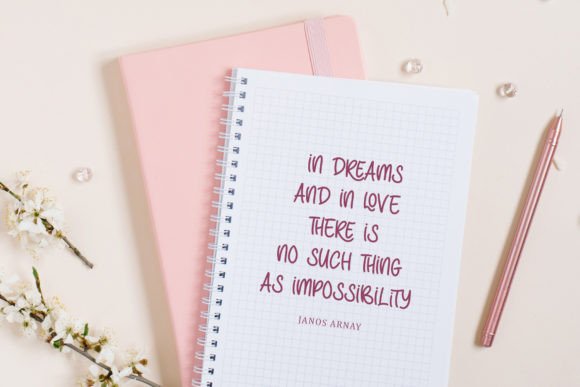 IN DREAMS
AND IN LOVE
THERE IS
NO SUCH THING
AS IMPOSSIBILITY
JANOS ARNAY